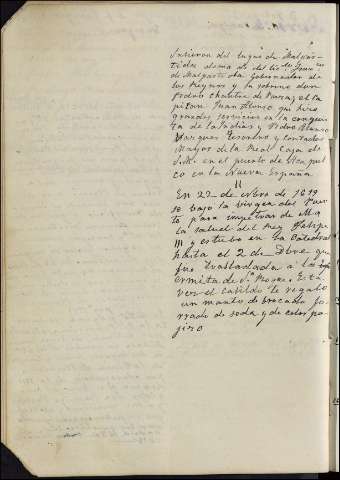 tidas dema de del lic.do Gonz.o
de Malpartida Gobernador de
los Reynos y la sobrino don
Pedro chantre de Plasencia, el Ca
pitan Juan Alonso que hizo
grandes servicios en la conquis
ta de las Indias y Pedro Alonso
Vazquez Tesorero y Contador
Mayor de la Real Caja de
S.M. en el puerto de Acapul
co en la Nueva España.
11
En 22 de nbre de 1619
se bajo la virgen del Puer
to para impetrar de M.a
la salud del Rey Felipe
III y estubo en la Catedral
hasta el 2 de Dbre que
fue trasladada a la
ermita de S.n
vez el Cabildo le regaló
un manto de brocado fo
rrado de seda y de color pa
jizo